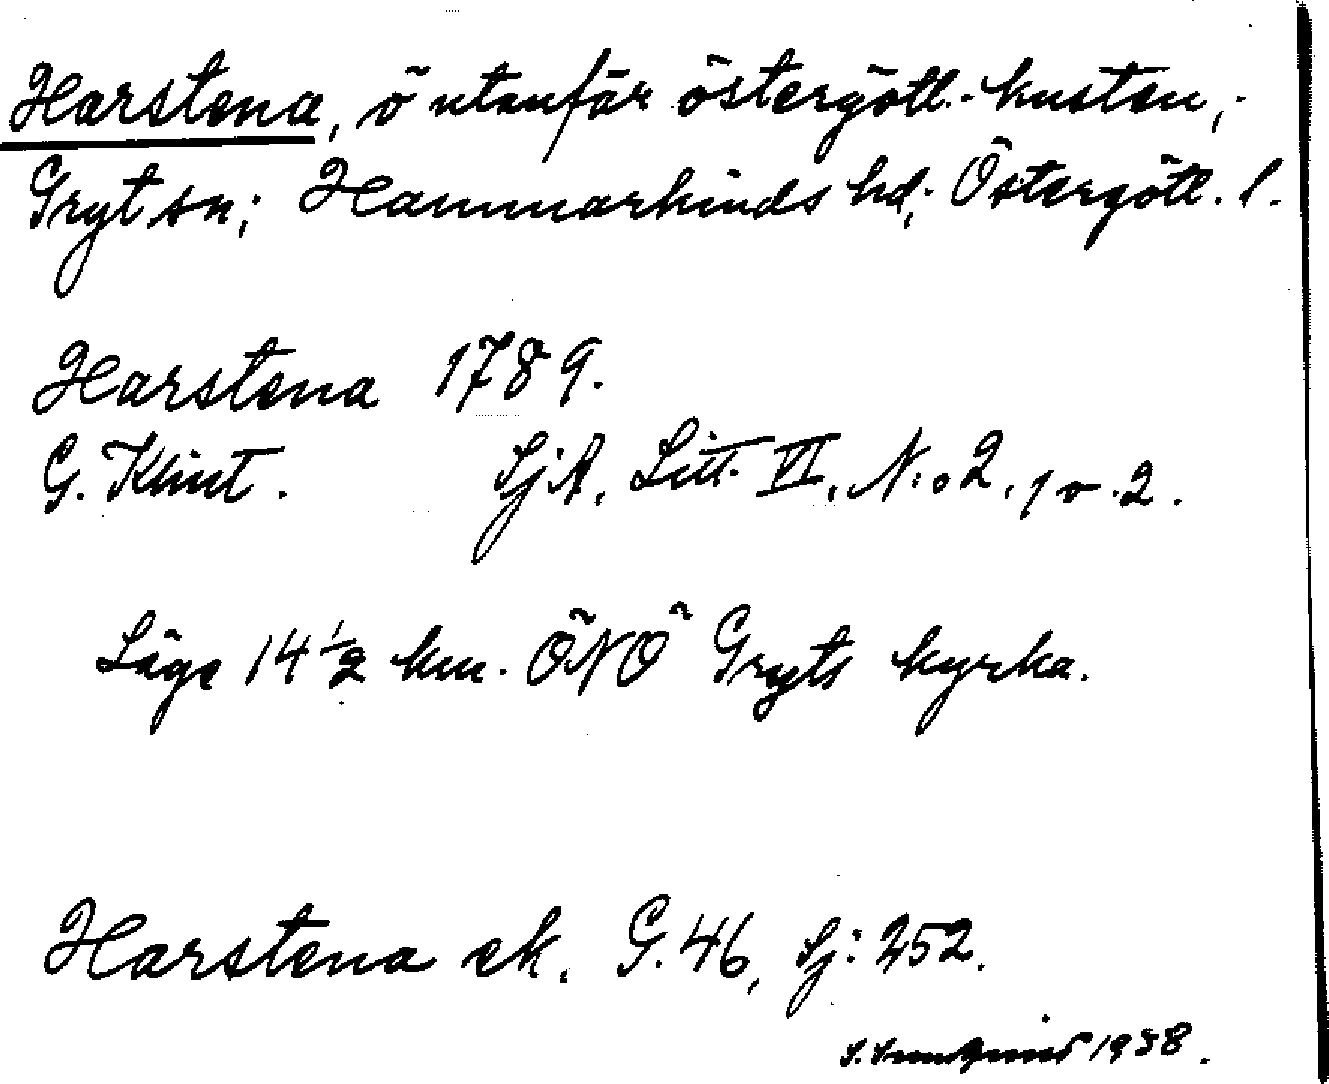 Harstena, ö utanför östergötl.-kusten,
Gryt sn; Hammarkinds hd; Östergötl. l.
Harstena 1789.
G. Klint. SjA, Litt. VI, N:o 2, 1 o 2.
Läge 14 1/2 km. ÖNÖ Gryts kyrka.
Harstena ek. G. 46, Sj: 252.
1938.